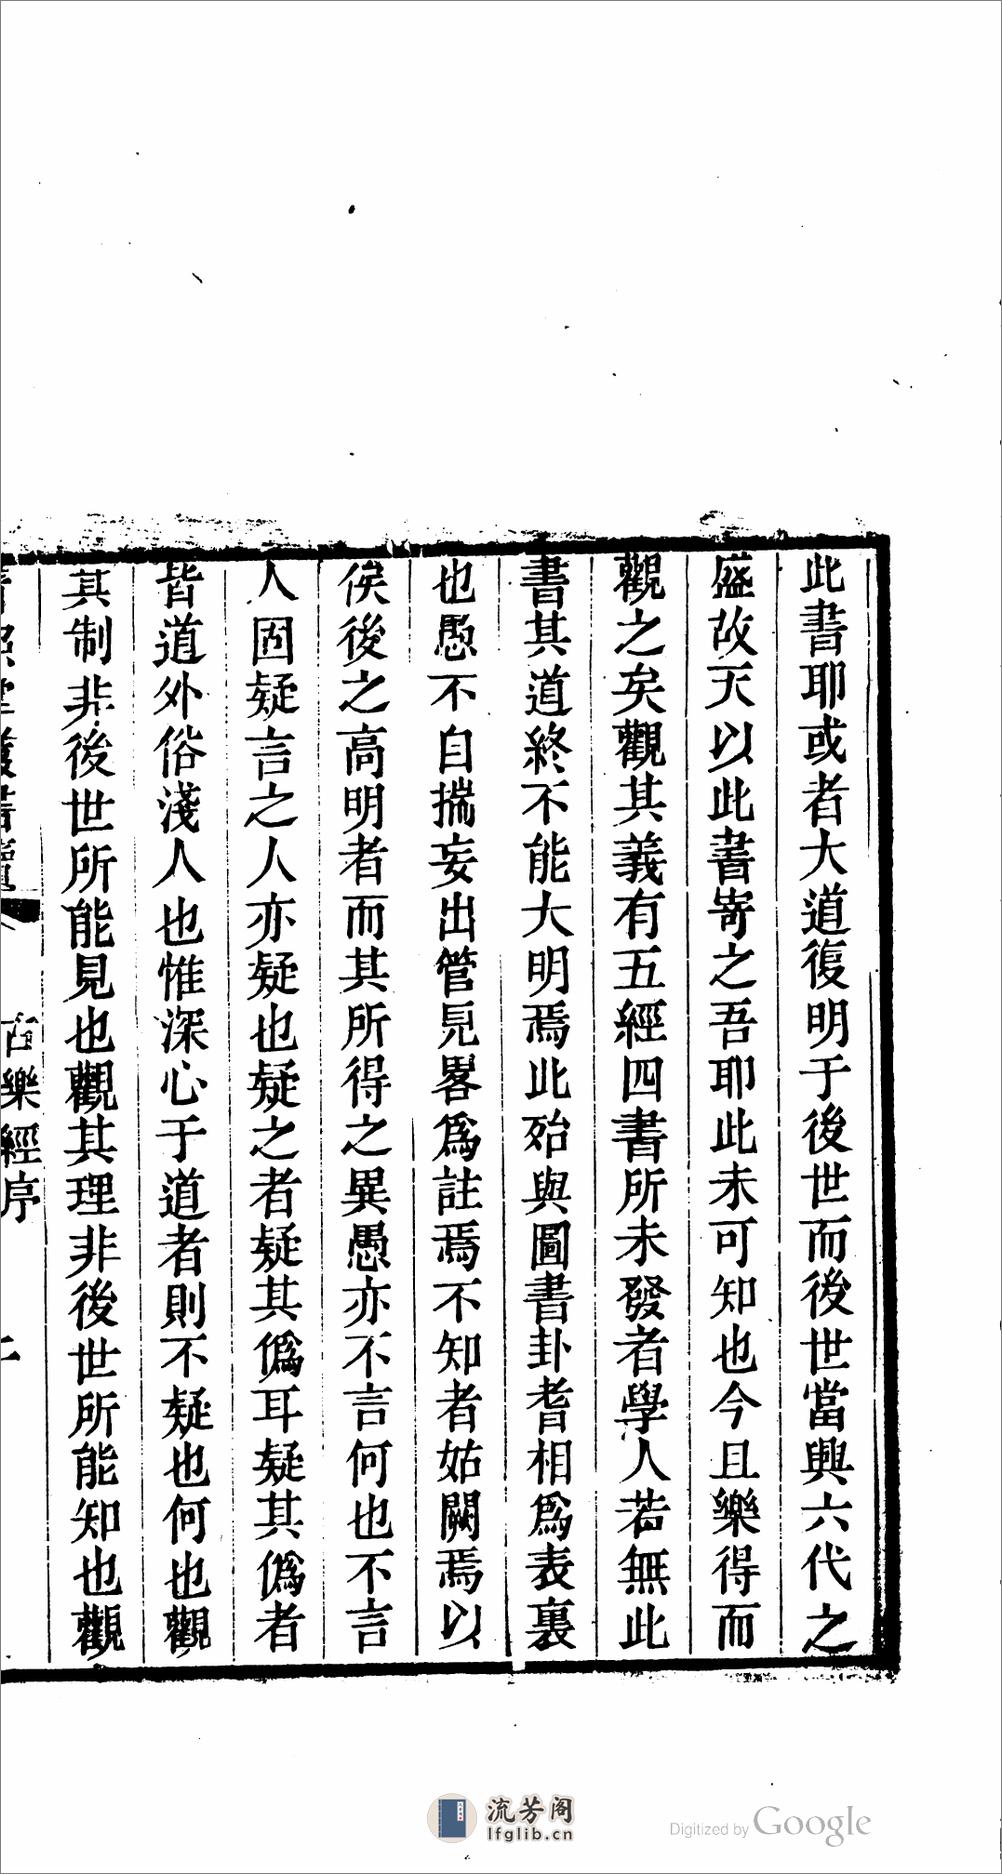 此書耶或者大道復明于後世而後世當興六代之
盛故天以此書寄之吾耶此未可知也今且樂得而
觀之矣觀其義有五經四書所未發者學人若無此
書其道終不能大明焉此殆與圖書卦耆相爲表裏
也愚不自揣妄出管見畧爲註焉不知者姑闕焉以
俟後之高明者而其所得之異愚亦不言何也不言
人固疑言之人亦疑也疑之者疑其僞耳疑其僞者
皆道外俗淺人也惟深心于道者則不疑也何也觀
其制非後世所能見也觀其理非後世所能知也觀
古樂經序
流芳阁
lfglib.cn
Digitized by Google